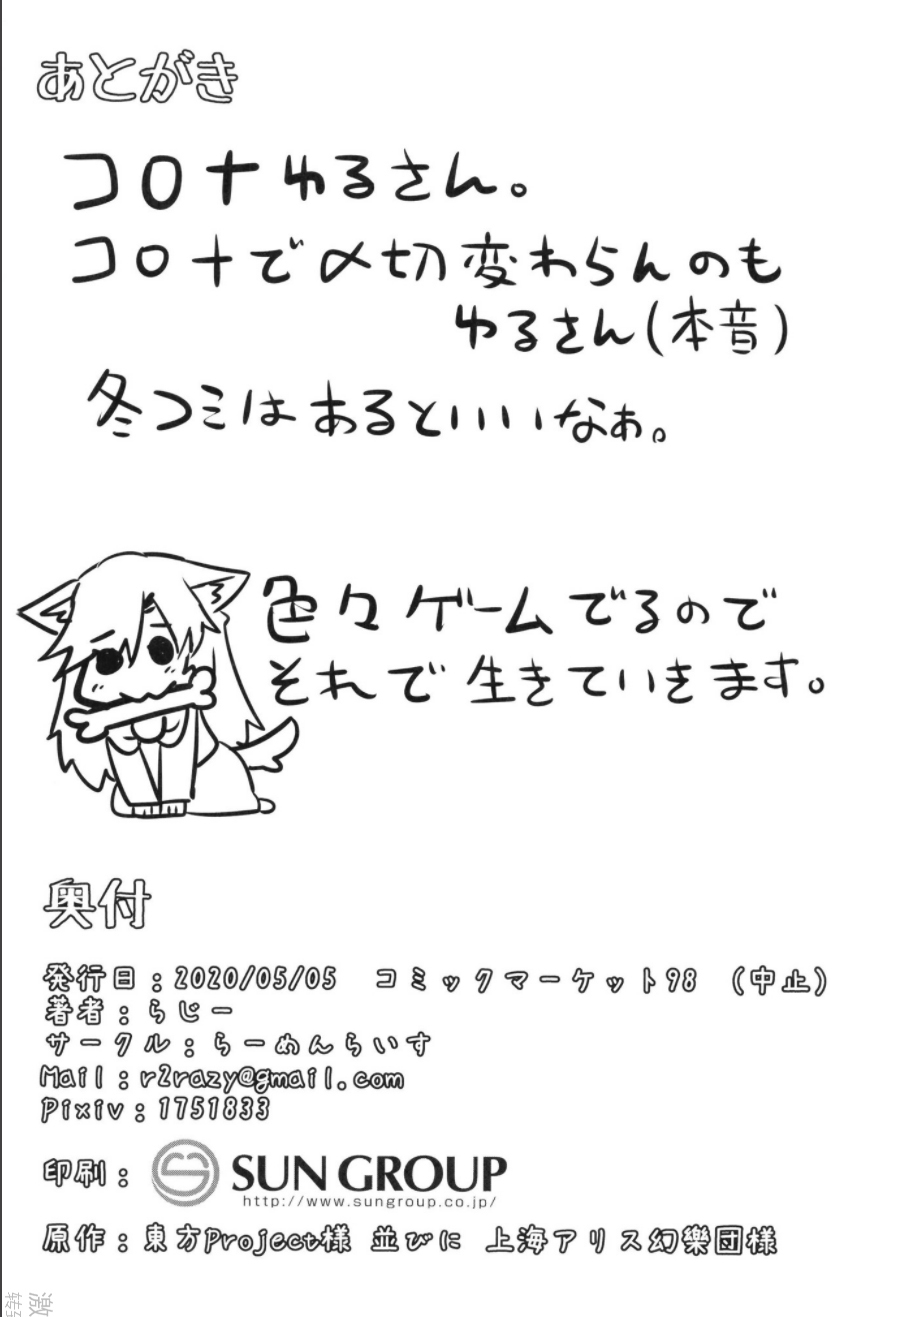 あとがき
コロナゆるさん。
コロナで〆切変わらんのも
ゆるさん(本音)
冬コミはあるといいなぁ。
色々ゲームでるので
それで生きていきます。
奥付
発行日：2020/05/05　コミックマーケット98　(中止)
著者：らじー
サークル：らーめんらいす
Mail：r2razy@gmail.com
Pixiv：1751833
印刷：SUN GROUP
http://www.sungroup.co.jp/
原作：東方Project様 並びに 上海アリス幻樂団様